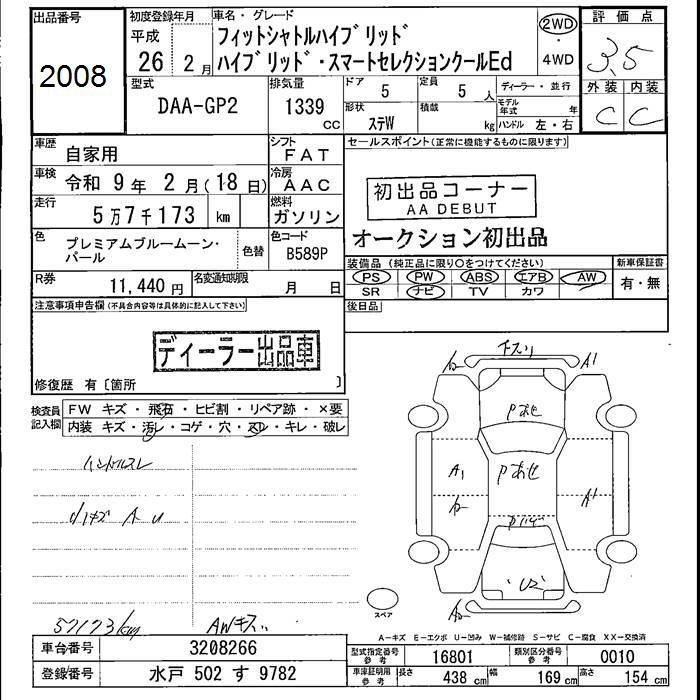 出品番号
2008
初度登録年月
平成
26 2月
車名・グレード
フィットシャトルハイブリッド
ハイブリッド・スマートセレクションクールEd
2WD
4WD
評価点
3.5
外装 内装
C C
型式
DAA-GP2
排気量
1339
cc
ドア 5
定員 5 人
ディーラー・並行
モデル年式 年
形状 ステW
積載 kg
ハンドル 左・右
車歴 自家用
シフト FAT
車検 令和 9年 2月(18日)
冷房 AAC
走行 5万7千173 km
燃料 ガソリン
色 プレミアムブルームーン・パール
色替
色コード B589P
R券 11,440円
名変通知期限 月 日
セールスポイント(正常に機能するものに限ります)
初出品コーナー
AA DEBUT
オークション初出品
装備品(純正品に限り○をつけてください)
PS PW ABS エアB AW
SR ナビ TV カワ
新車保証書
有・無
後日品
注意事項申告欄(不具合内容等は具体的に記入して下さい)
ディーラー出品車
修復歴 有〔箇所 〕
検査員記入欄
FW キズ・飛石・ヒビ割・リペア跡・×要
内装 キズ・汚レ・コゲ・穴・スレ・キレ・破レ
ハンドルスレ
内キズ A U
57173km AWキズ
チスリ
A2 A1
Pあせ
A1 Pあせ A1
A2
U2
A2
スペア
A-キズ E-エクボ U-凹み W-補修跡 S-サビ C-腐食 XX-交換済
車台番号 3208266
登録番号 水戸 502 す 9782
型式指定番号 参考 16801
類別区分番号 参考 0010
車庫証明用 参考 長さ 438 cm 幅 169 cm 高さ 154 cm